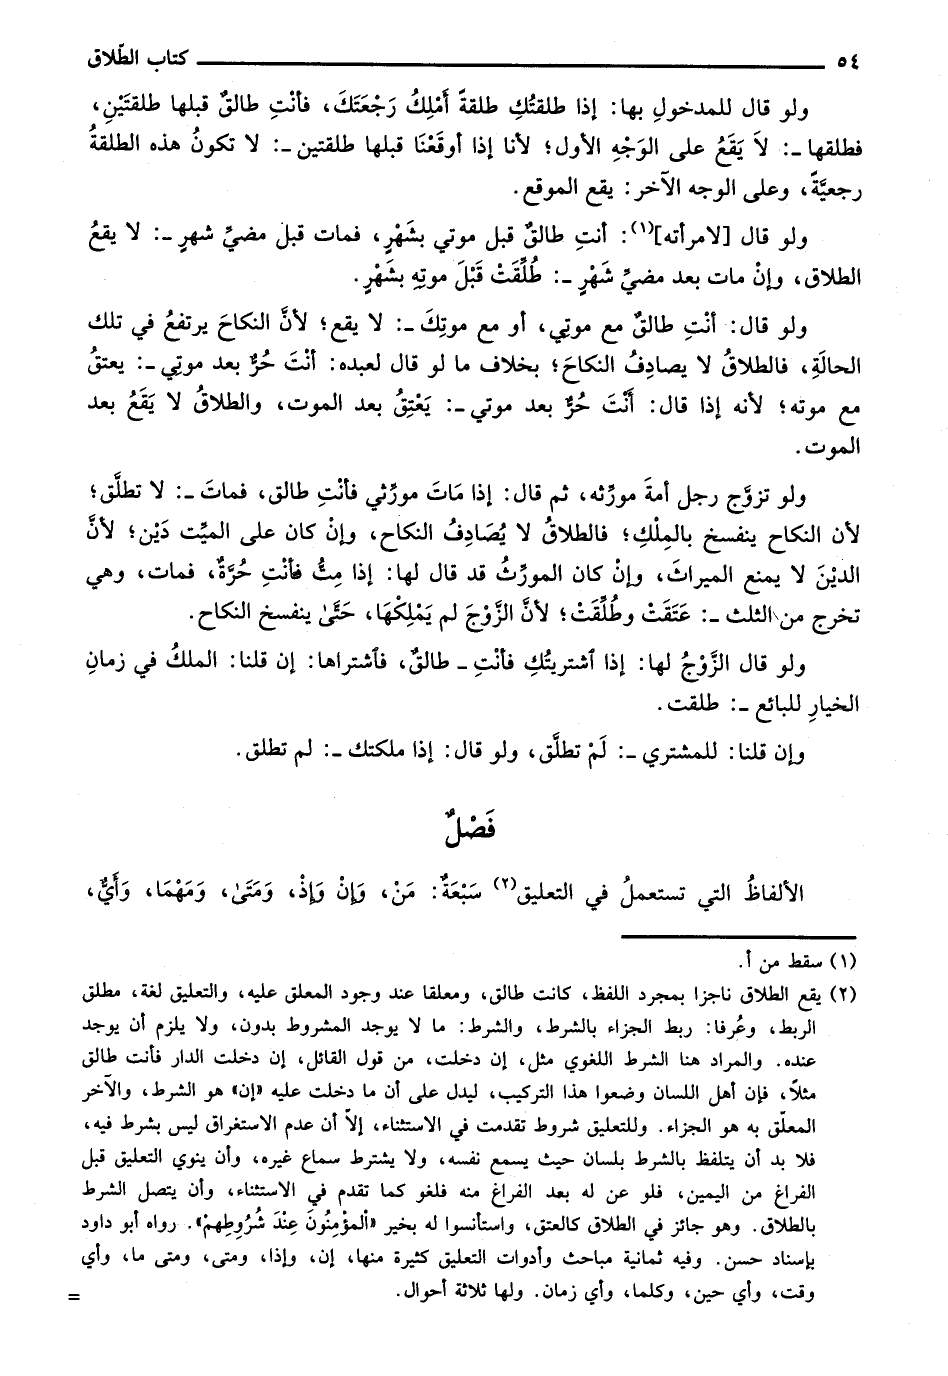 ٥٤ كتاب الطّلاق
ولو قال للمدخولِ بها: إذا طلقتُكِ طلقةً أَمْلِكُ رَجْعَتَكَ، فأنْتِ طالقٌ قبلها طلقتَيْنِ،
فطلقها ـ: لاَ يَقَعُ على الوَجْهِ الأول؛ لأنا إذا أوقَعْنَا قبلها طلقتين ـ: لا تكونُ هذه الطلقةُ
رجعيَّةً، وعلى الوجه الآخر: يقع الموقع.
ولو قال [لامرأته](١): أنتِ طالقٌ قبل موتي بشَهْرٍ، فمات قبلَ مضيِّ شهرٍ ـ: لا يقعُ
الطلاق، وإنْ مات بعد مضيِّ شَهْرٍ ـ: طُلِّقَتْ قَبْلَ موتِهِ بشَهْرٍ.
ولو قال: أنْتِ طالقٌ مع موتِي، أو مع موتِكَ ـ: لا يقع؛ لأنَّ النكاحَ يرتفعُ في تلك
الحالَةِ، فالطلاقُ لا يصادِفُ النكاحَ؛ بخلاف ما لو قال لعبده: أنْتَ حُرٌّ بعد موتي ـ: يعتقُ
مع موته؛ لأنه إذا قال: أَنْتَ حُرٌّ بعد موتي ـ: يَعْتِقُ بعد الموت، والطلاقُ لا يَقَعُ بعد
الموت.
ولو تزوَّج رجل أمةَ مورِّثه، ثم قال: إذا مَاتَ مورِّثي فأنْتِ طالق، فماتَ ـ: لا تطلَّق؛
لأن النكاح ينفسخ بالمِلْكِ؛ فالطلاقُ لا يُصَادِفُ النكاح، وإنْ كان على الميِّت دَيْن؛ لأنَّ
الديْنَ لا يمنع الميراثَ، وإنْ كان المورِّثُ قد قال لها: إذا مِتُّ فأنْتِ حُرَّةٌ، فمات، وهي
تخرج من الثلث ـ: عَتَقَتْ وطُلِّقَتْ؛ لأنَّ الزَّوْجَ لم يَمْلِكْهَا، حَتَّىٰ ينفسخ النكاح.
ولو قال الزَّوْجُ لها: إذا ٱشتريتُكِ فأنْتِ ـ طالقٌ، فأشتراها: إن قلنا: الملكُ في زمانِ
الخيارِ للبائع ـ: طلقت.
وإن قلنا: للمشتري ـ: لَمْ تطلَّق، ولو قال: إذا ملكتك ـ: لم تطلق.
فَصْلٌ
الألفاظُ التي تستعملُ في التعليق(٢) سَبْعَةٌ: مَنْ، وَإِنْ وَإِذْ، وَمَتَىٰ، وَمَهْمَا، وَأَيُّ،
(١) سقط من أ.
(٢) يقع الطلاق ناجزا بمجرد اللفظ، كانت طالق، ومعلقا عند وجود المعلق عليه، والتعليق لغة، مطلق
الربط، وعُرفا: ربط الجزاء بالشرط، والشرط: ما لا يوجد المشروط بدون، ولا يلزم أن يوجد
عنده. والمراد هنا الشرط اللغوي مثل، إن دخلت، من قول القائل، إن دخلت الدار فأنت طالق
مثلاً، فإن أهل اللسان وضعوا هذا التركيب، ليدل على أن ما دخلت عليه «إن» هو الشرط، والآخر
المعلّق به هو الجزاء. وللتعليق شروط تقدمت في الاستثناء، إلاّ أن عدم الاستغراق ليس بشرط فيه،
فلا بد أن يتلفظ بالشرط بلسان حيث يسمع نفسه، ولا يشترط سماع غيره، وأن ينوي التعليق قبل
الفراغ من اليمين، فلو عن له بعد الفراغ منه فلغو كما تقدم في الاستثناء، وأن يتصل الشرط
بالطلاق. وهو جائز في الطلاق كالعتق، واستأنسوا له بخير «ٱلمؤْمِنُونَ عِنْدَ شُرُوطِهِمْ». رواه أبو داود
بإسناد حسن. وفيه ثمانية مباحث وأدوات التعليق كثيرة منها، إن، وإذا، ومتى، ومتى ما، وأي
وقت، وأي حين، وكلما، وأي زمان. ولها ثلاثة أحوال. =